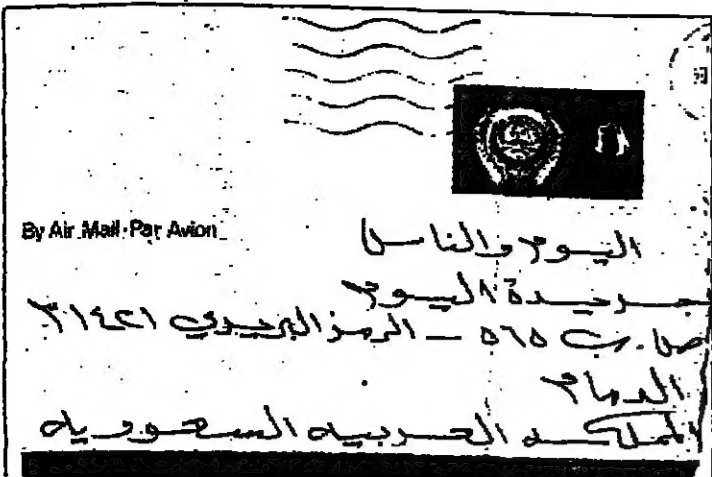 By Air Mail·Par Avion
اليوم والناس
جريدة اليوم
ص.ب ٥٦٥ – الرمز البريدي ٣١٤٢١
الدمام
المملكه العربيه السعوديه